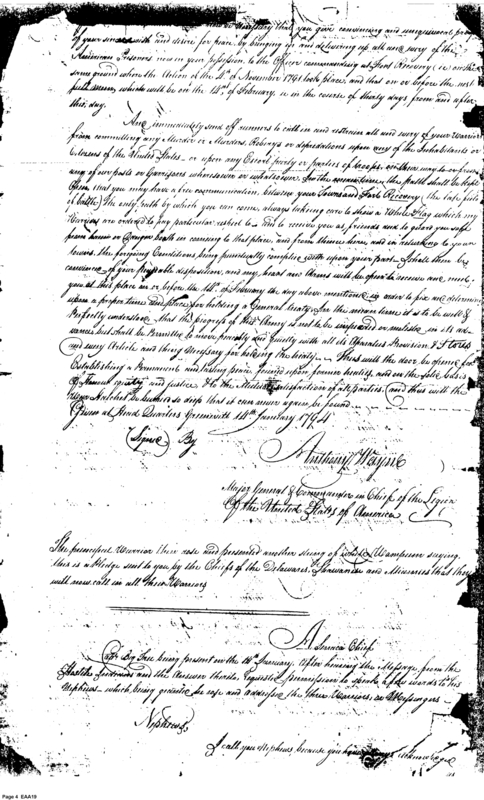 necessary that you give convincing and unequivocal proof
of your sincerity and desire for peace, by bringing in and delivering up, all and every of the
American Prisoners now in your possession, to the Officer commanding at Fort Recovery, i.e. on the
same ground where the Action of the 4th of November 1791 took place, and that on or before the next
full moon, which will be on the 14th of February, i.e. in the course of thirty days from and after
this day.
And immediately send off runners to call in and restrain all and every of your Warriors
from committing any Murder or Murders, Roberys or depredations upon any of the Inhabitants or
Citizens of the United States, or upon any Escort party or parties of troops, on their way to or from
any of our posts or Garrisons whensoever or whatsoever. In the meantime the path shall be kept
Open that you may have a free communication between your Towns and Fort Recovery (the late field
of battle) the only path by which you can come, always taking care to show a White Flag which my
Warriors are ordered to pay particular respect to and to receive you as friends and to guard you safe
from harm or danger both in coming to that place, and from thence here, and in returning to your
towns. the foregoing Conditions being punctually complied with upon your part I shall then be
convinced of your disposition, and my heart and Arms will be open to receive and meet
you at this place on or before the 14th of February the day above mentioned in order to fix and determine
upon a proper time and place for holding a General treaty. for the mean time it is to be well &
Perfectly understood that the progress of this Army is not to be impeded or molested in its ad
vances but shall be Permitted to move freely and quietly with all its Apparatus Provision & Stores
and every Article and thing Necessary for holding the treaty Thus will the door be opened for
Establishing a Permanent and lasting peace upon former treaties, and on the basis
of equity and justice & to the Mutual Satisfaction of all parties. and thus will the
Hatchet be buried so deep that it can never again be found
Given at Head Quarters Greenville 14th January 1794
(Signed) By
Anthony Wayne
Major General & Commander in Chief of the Legion
Of the United States of America
The principal Warrior then rose and presented another string of white Wampum saying,
this is a Pledge sent to you by the Chiefs of the Delawares, Shawanoes and Miamies that they
will now call in all their Warriors
A Seneca Chief
Capt. Big Tree being present on the 14th January. After hearing the Message from the
Hostile Indians and the Answer thereto, Requested permission to speak a few words to his
Nephews, which being granted he rose and addressed the three Warriors, or Messengers.
Nephews
I call you Nephews because you acknowledged
Page 4 EAA19